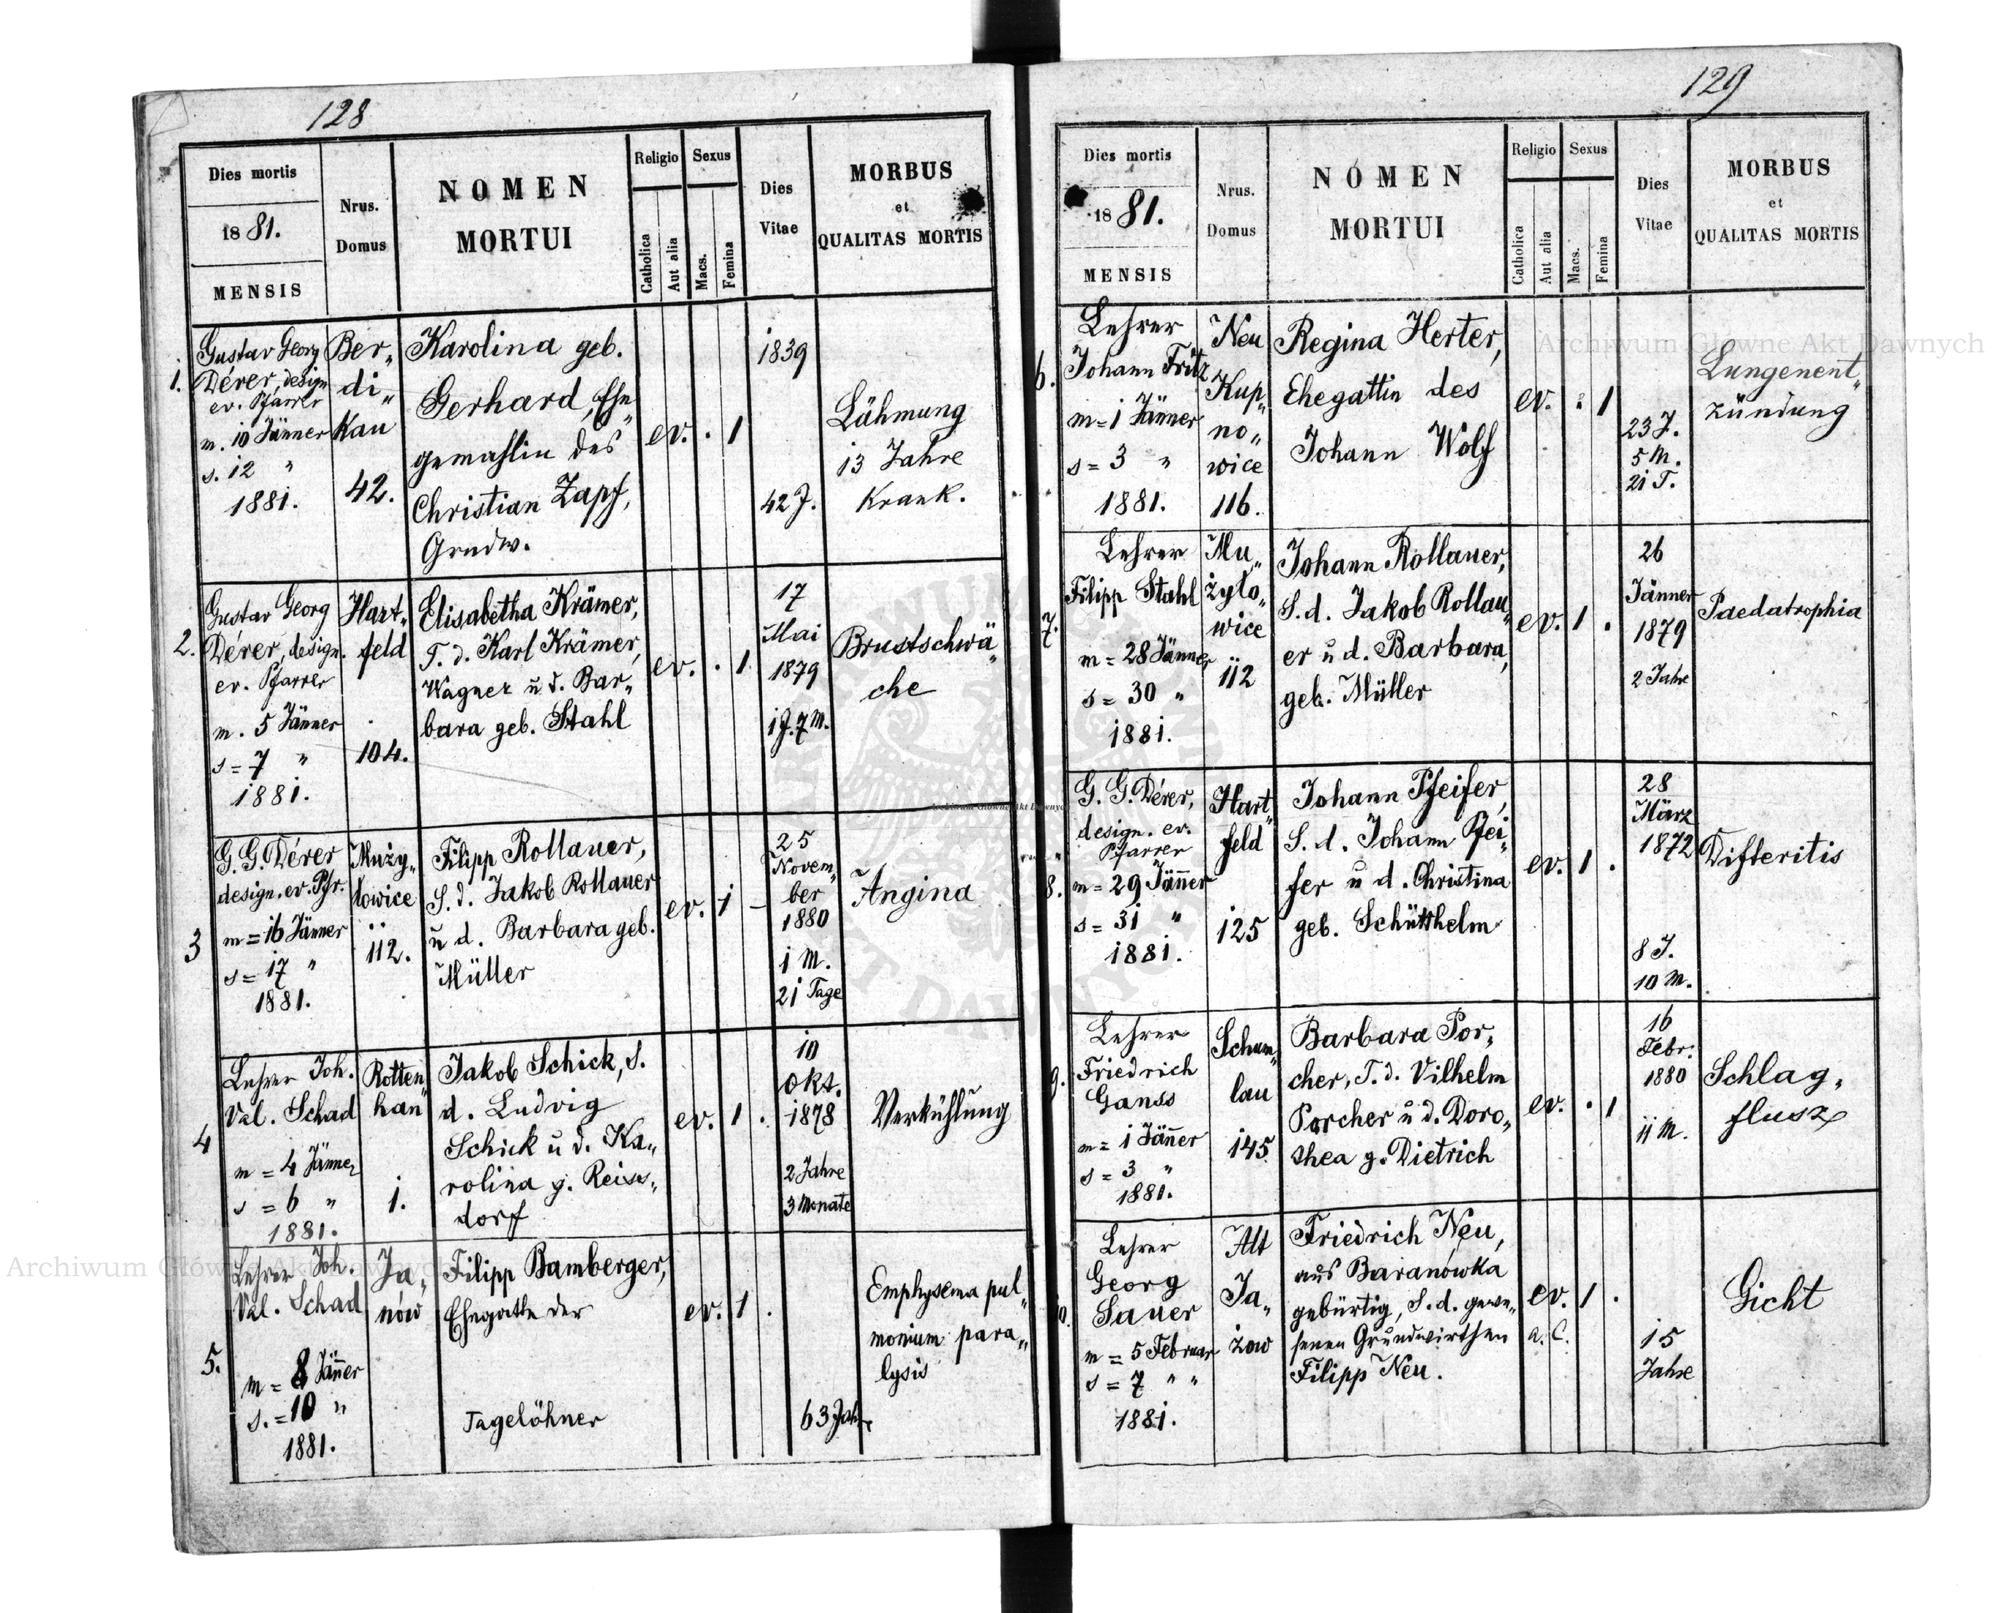 128
Dies mortis
1881.
MENSIS
Nrus.
Domus
NOMEN
MORTUI
Religio
Catholica
Aut alia
Sexus
Macs.
Femina
Dies
Vitae
MORBUS
et
QUALITAS MORTIS
1.
Gustav Georg
Dérer, design
ev. Pfarrer
m. 10 Jänner
s. 12 "
1881.
Ber„
di„
kau
42.
Karolina geb.
Gerhard, Ehe„
gemahlin des
Christian Zapf,
Grndw.
ev. . 1
1839
42 J.
Lähmung
13 Jahre
Krank.
2.
Gustav Georg
Dérer, design.
ev. Pfarrer
m. 5 Jänner
s = 7 "
1881.
Hart„
feld
104.
Elisabetha Krämer,
T. d. Karl Krämer,
Wagner u d. Bar„
bara geb. Stahl
ev. . 1
17
Mai
1879
1 J. 7 M.
Brustschwä„
che
3
G. G. Dérer
design. ev. Pfr.
m = 16 Jänner
s = 17 "
1881.
Muży„
łowice
112.
Filipp Rollauer,
S. d. Jakob Rollauer
u d. Barbara geb.
Müller
ev. 1 -
25
Novem„
ber
1880
1 M.
21 Tage
Angina
4
Lehrer Joh.
Val. Schad
m = 4 Jänner
s = 6 "
1881.
Rotten„
han
1.
Jakob Schick, S.
d. Ludvig
Schick u d. Ka„
rolina g. Reiss„
dorf
ev. 1 .
10
Okt.
1878
2 Jahre
3 Monate
Verkühlung
5.
Lehrer Joh.
Val. Schad
m = 8 Jänner
s. = 10 "
1881.
Ja„
nów
Filipp Bamberger,
Ehegatte der
Tagelöhner
ev. 1 .
63 Jahr
Emphysema pul„
monium para„
lysis
129
Dies mortis
1881.
MENSIS
Nrus.
Domus
NOMEN
MORTUI
Religio
Catholica
Aut alia
Sexus
Macs.
Femina
Dies
Vitae
MORBUS
et
QUALITAS MORTIS
6.
Lehrer
Johann Fritz
m = 1 Jänner
s = 3 "
1881.
Neu
Kup„
no„
wice
116.
Regina Herter,
Ehegattin des
Johann Wolf
ev. . 1
23 J.
5 M.
21 T.
Lungenent„
zündung
7.
Lehrer
Filipp Stahl
m = 28 Jänner
s = 30 "
1881.
Mu„
żyło„
wice
112
Johann Rollauer,
S. d. Jakob Rollau„
er u d. Barbara,
geb. Müller
ev. 1 .
26
Jänner
1879
2 Jahre
Paedatrophia
8.
G. G. Dérer,
design. ev.
Pfarrer
m = 29 Jänner
s = 31 "
1881.
Hart„
feld
125
Johann Pfeifer,
S. d. Johann Pfei„
fer u d. Christina
geb. Schütthelm
ev. 1 .
28
März
1872
8 J.
10 M.
Difteritis
9.
Lehrer
Friedrich
Ganss
m = 1 Jänner
s = 3 "
1881.
Schum„
lau
145
Barbara Por„
cher, T. d. Vilhelm
Porcher u d. Doro„
thea g. Dietrich
ev. . 1
16
Febr.
1880
11 M.
Schlag„
flusz
10.
Lehrer
Georg
Sauer
m = 5 Februar
s = 7 " "
1881.
Alt
Ja„
zow
Friedrich Neu,
aus Baranówka
gebürtig, S. d. gewe„
senen Grundwirthen
Filipp Neu.
ev. 1 .
a. C.
15
Jahre
Gicht
Archiwum Główne Akt Dawnych
Archiwum Główne Akt Dawnych
Archiwum Główne Akt Dawnych